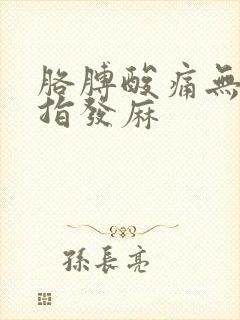 胳膊酸痛無
指發麻
孫長亮